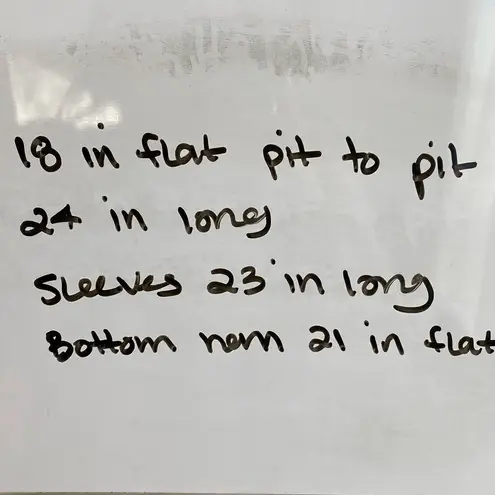 18 in flat pit to pit
24 in long
Sleeves 23 in long
Bottom hem 21 in flat